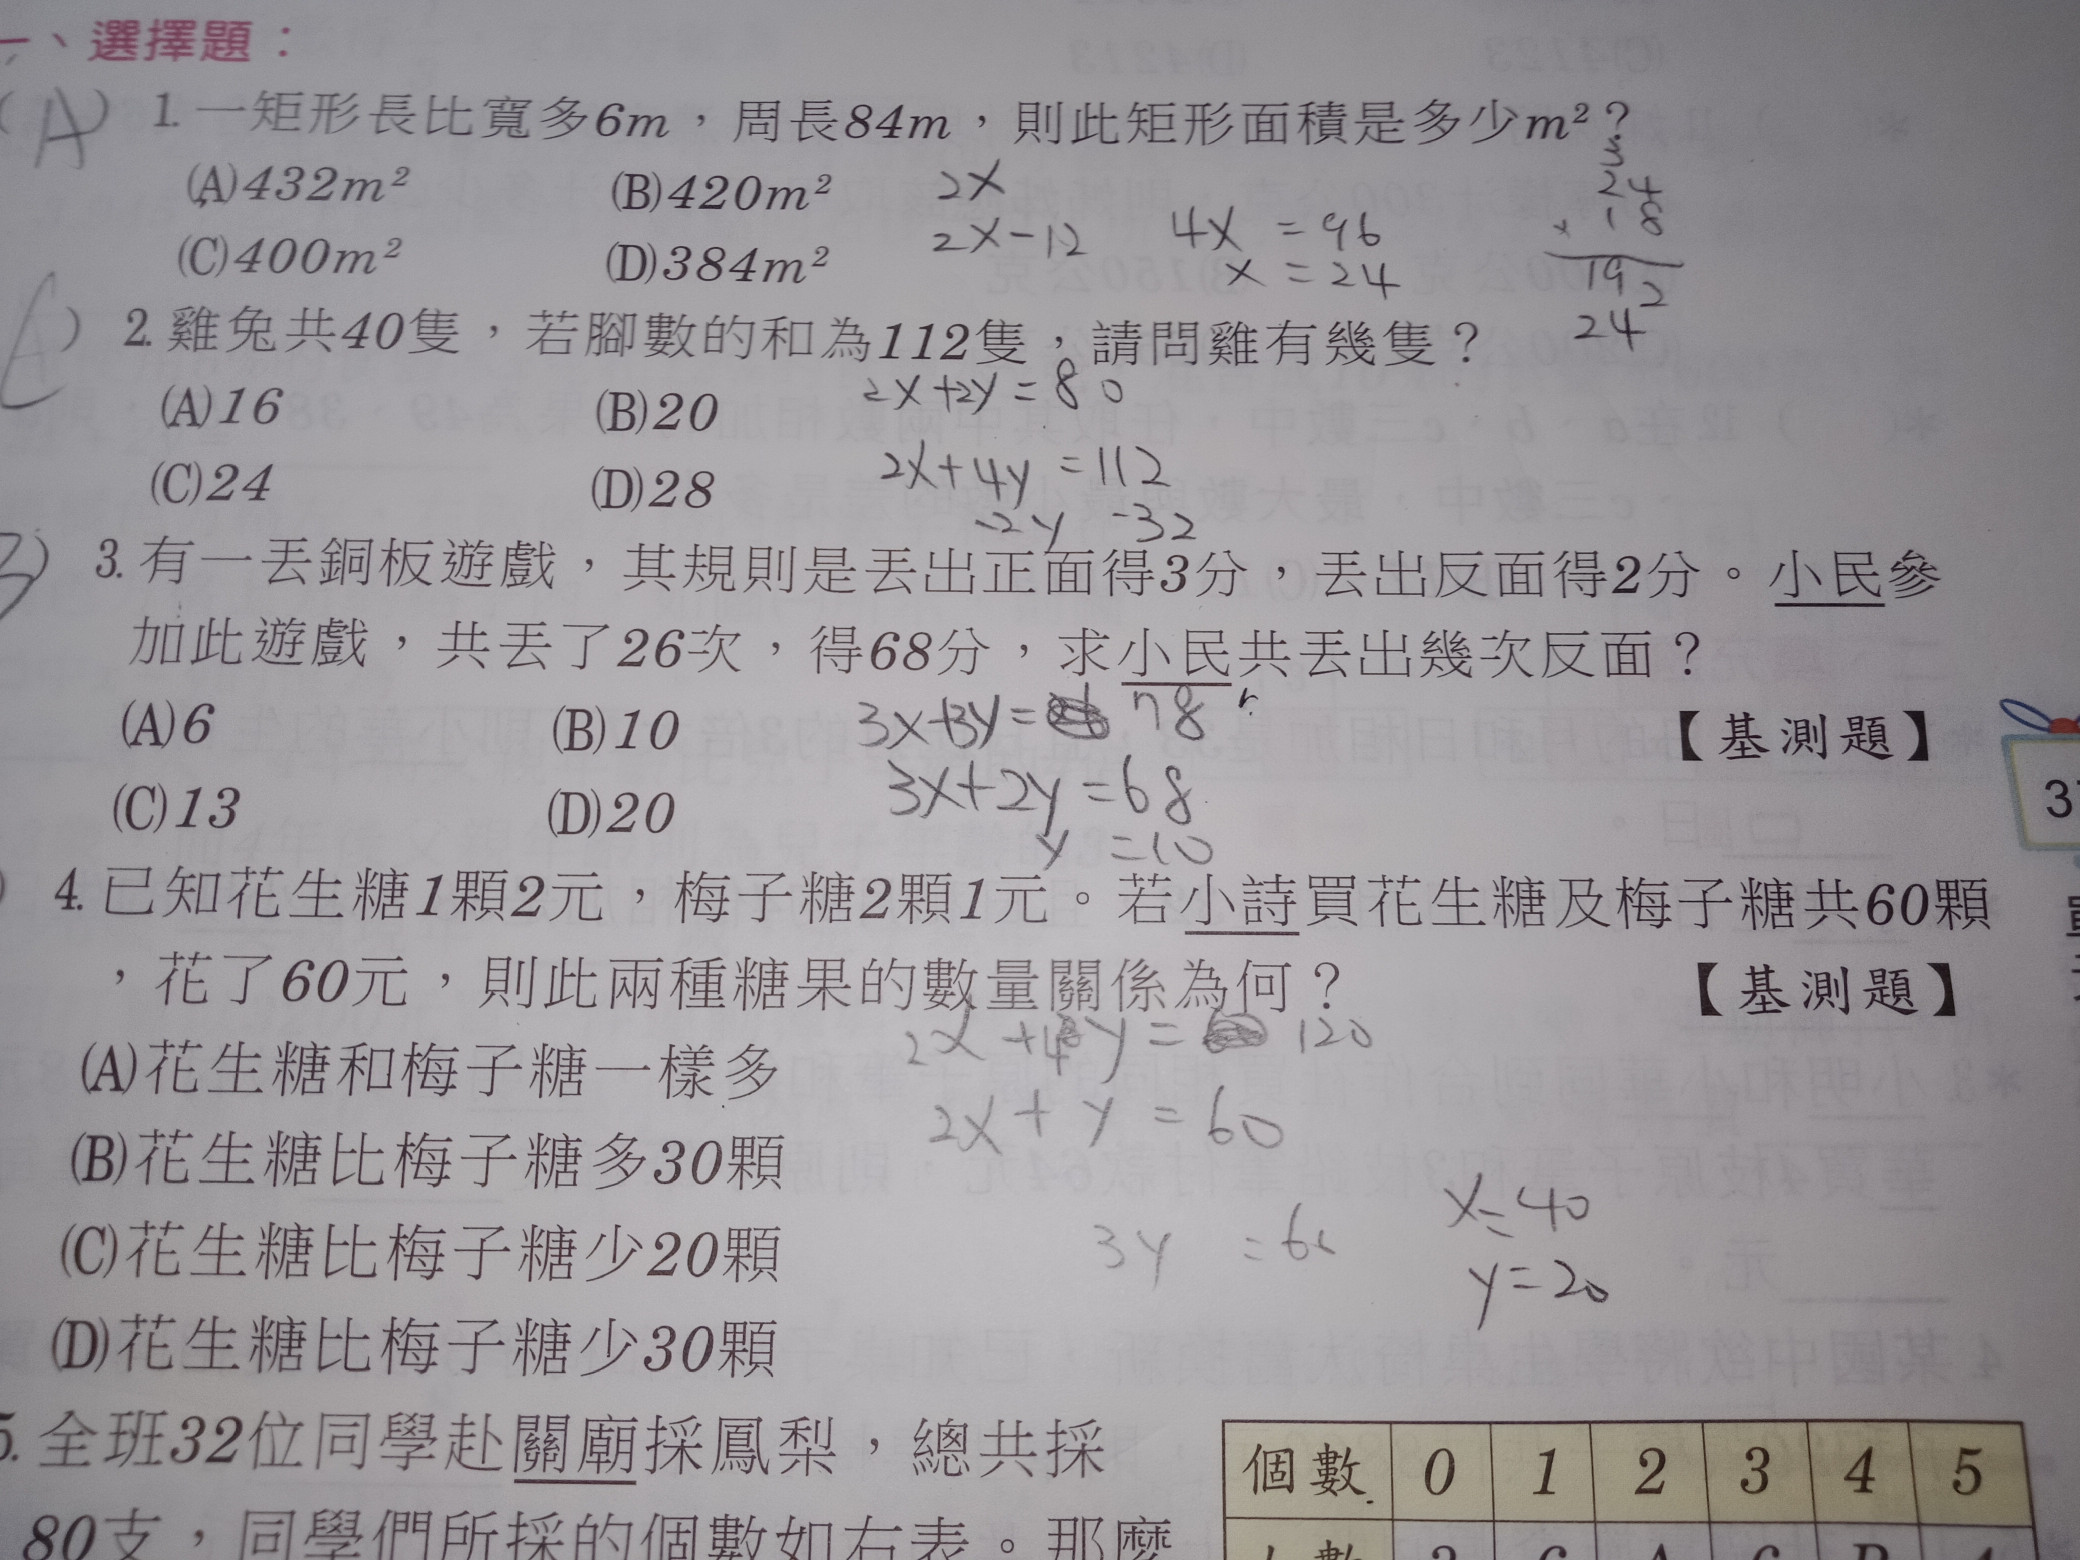 一、選擇題：
(A) 1. 一矩形長比寬多6m，周長84m，則此矩形面積是多少m²？
(A)432m² (B)420m²
(C)400m² (D)384m²
2x
2x-12 4x = 96
x = 24
3
24
× 18
192
24
(C) 2. 雞兔共40隻，若腳數的和為112隻，請問雞有幾隻？
(A)16 (B)20
(C)24 (D)28
2x+2y=80
2x+4y=112
-2y -32
3. 有一丟銅板遊戲，其規則是丟出正面得3分，丟出反面得2分。小民參
加此遊戲，共丟了26次，得68分，求小民共丟出幾次反面？
(A)6 (B)10 【基測題】
(C)13 (D)20
3x+3y= 78
3x+2y=68
y =10
4. 已知花生糖1顆2元，梅子糖2顆1元。若小詩買花生糖及梅子糖共60顆
，花了60元，則此兩種糖果的數量關係為何？ 【基測題】
(A)花生糖和梅子糖一樣多
(B)花生糖比梅子糖多30顆
(C)花生糖比梅子糖少20顆
(D)花生糖比梅子糖少30顆
2x+4y= 120
2x+y=60
3y =6
x=40
y=20
5. 全班32位同學赴關廟採鳳梨，總共採
80支，同學們所採的個數如右表。那麼
個數 0 1 2 3 4 5